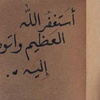 أستغفر الله
العظيم وأتوب
إليه